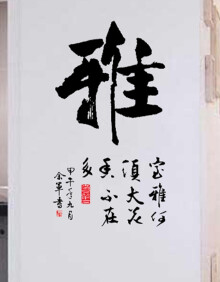 雅
室雅何
須大花
香不在
多
甲午年九月
余军書